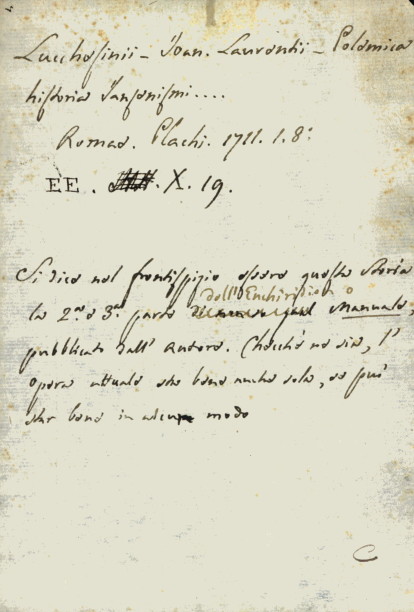 Lucchesinii - Joan. Laurentii - Polemica
historia Jansenismi....
Romae. Plachi. 1711. 1. 8:
EE. X. 19.
Si dice nel frontispizio essere questa Storia
dell'Enchiridion o
la 2.a e 3.a parte Manuale,
pubblicato dall' Autore. Checchè ne sia, l'
opera attuale sta bene anche sola, se può
star bene in alcun modo
C